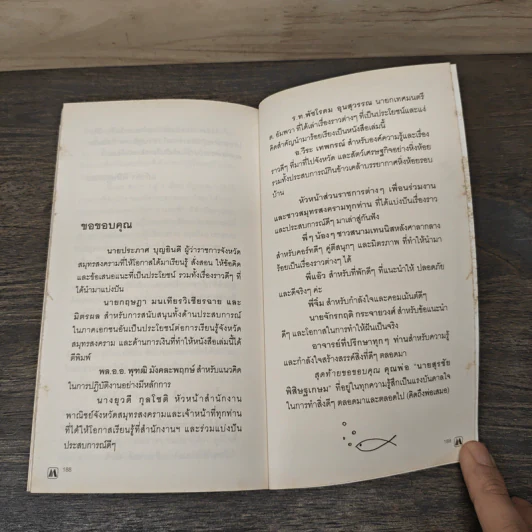 ขอขอบคุณ
นายประภาศ บุญยินดี ผู้ว่าราชการจังหวัด
สมุทรสงครามที่ให้โอกาสได้มาเรียนรู้ สั่งสอน ให้ข้อคิด
และข้อเสนอแนะที่เป็นประโยชน์ รวมทั้งเรื่องราวดีๆ ที่
ได้นำมาแบ่งปัน
นายกฤษฎา มนเทียรวิเชียรฉาย และ
มิตรผล สำหรับการสนับสนุนทั้งด้านประสบการณ์
ในภาคเอกชนอันเป็นประโยชน์ต่อการเรียนรู้จังหวัด
สมุทรสงคราม และด้านการเงินที่ทำให้หนังสือเล่มนี้ได้
ตีพิมพ์
พล.อ.อ. พุฑฒิ มังคละพฤกษ์ สำหรับแนวคิด
ในการปฏิบัติงานอย่างมีหลักการ
นางยุวดี กุลโชติ หัวหน้าสำนักงาน
พาณิชย์จังหวัดสมุทรสงครามและเจ้าหน้าที่ทุกท่าน
ที่ได้ให้โอกาสเรียนรู้ที่สำนักงานฯ และร่วมแบ่งปัน
ประสบการณ์ดีๆ
188
ร.ท.พัชโรดม อุนสุวรรณ นายกเทศมนตรี
ต. อัมพวา ที่ได้เล่าเรื่องราวต่างๆ ที่เป็นประโยชน์และแง่
คิดสำคัญนำมาร้อยเรียงเป็นหนังสือเล่มนี้
อ.วีระ เทพกรณ์ สำหรับองค์ความรู้และเรื่อง
ราวดีๆ ที่มาที่ไปจังหวัด และสัตว์เศรษฐกิจอย่างหิ่งห้อย
รวมทั้งประสบการณ์กินข้าวเคล้าบรรยากาศหิ่งห้อยรอบ
บ้าน
หัวหน้าส่วนราชการต่างๆ เพื่อนร่วมงาน
และชาวสมุทรสงครามทุกท่าน ที่ได้แบ่งปันเรื่องราว
และประสบการณ์ดีๆ มาเล่าสู่กันฟัง
พี่ๆ น้องๆ ชาวสนามเทนนิสหลังศาลากลาง
สำหรับคอร์ทดีๆ คู่ตีสนุกๆ และมิตรภาพ ที่ทำให้นำมา
ร้อยเป็นเรื่องราวต่างๆ ได้
พี่แอ๊ว สำหรับที่พักดีๆ ที่แนะนำให้ ปลอดภัย
และดีจริงๆ ค่ะ
พี่จิ๋ม สำหรับกำลังใจและคอมเม้นต์ดีๆ
นายจักรกฤติ กระจายวงศ์ สำหรับข้อแนะ
นำดีๆ และโอกาสในการทำให้ฝันเป็นจริง
อาจารย์ที่ปรึกษาทุกๆ ท่านสำหรับความรู้
และกำลังใจสร้างสรรค์สิ่งที่ดีๆ ตลอดมา
สุดท้ายขอขอบคุณ คุณพ่อ "นายสุรชัย
พิสิษฐเกษม" ที่อยู่ในทุกความรู้สึกเป็นแรงบันดาลใจ
ในการทำสิ่งดีๆ ตลอดมาและตลอดไป (คิดถึงพ่อเสมอ)